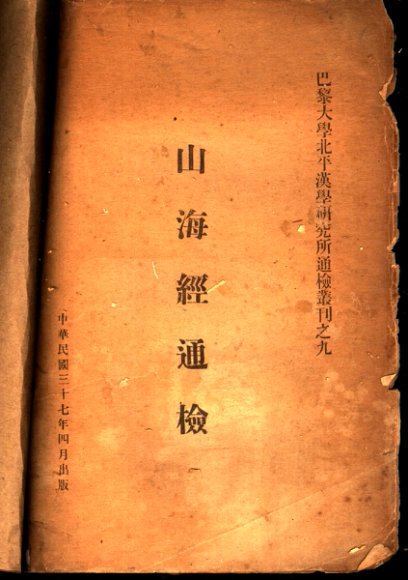 巴黎大學北平漢學研究所通檢叢刊之九
山海經通檢
中華民國三十七年四月出版